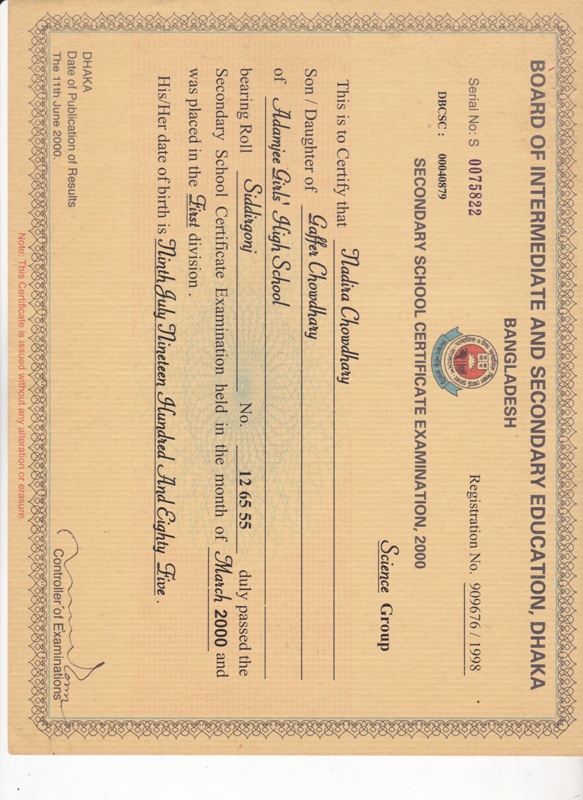 BOARD OF INTERMEDIATE AND SECONDARY EDUCATION, DHAKA
BANGLADESH
Serial No: S 0075822
Registration No. 909676 / 1998
DBCSC : 00040879
SECONDARY SCHOOL CERTIFICATE EXAMINATION, 2000
Science Group
This is to Certify that Nadira Chowdhary
Son / Daughter of Gaffer Chowdhary
of Adamjee Girls' High School
bearing Roll Siddirgonj No. 12 65 55 duly passed the
Secondary School Certificate Examination held in the month of March 2000 and
was placed in the First division .
His/Her date of birth is Ninth July Nineteen Hundred And Eighty Five .
DHAKA
Date of Publication of Results
The 11th June 2000.
Controller of Examinations
Note: This Certificate is issued without any alteration or erasure.